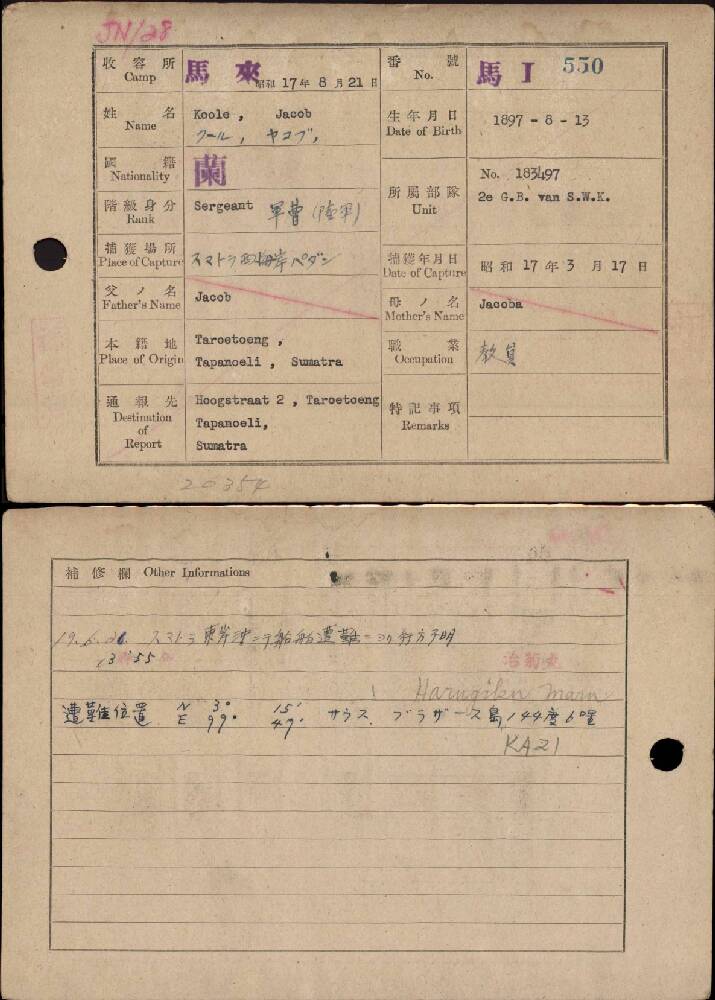 JN/28
收容所 Camp 馬來 昭和 17年 8月21日
番號 No. 馬 I 550
姓名 Name Koole , Jacob
クール, ヤコブ,
生年月日 Date of Birth 1897 - 8 - 13
國籍 Nationality 蘭
所屬部隊 Unit No. 183497
2e G.B. van S.W.K.
階級身分 Rank Sergeant 軍曹 (陸軍)
捕獲場所 Place of Capture スマトラ西海岸パダン
捕獲年月日 Date of Capture 昭和 17年 3月 17日
父ノ名 Father's Name Jacob
母ノ名 Mother's Name Jacoba
本籍地 Place of Origin Taroetoeng ,
Tapanoeli , Sumatra
職業 Occupation 教員
通報先 Destination of Report Hoogstraat 2 , Taroetoeng
Tapanoeli,
Sumatra
特記事項 Remarks
20354
補修欄 Other Informations
19.6.26. スマトラ東岸沖ニテ船舶遭難ニヨリ行方不明
13 55
治菊丸
Harugiku Maru
遭難位置 N 3° 15′ サウス, ブラザース島, 144度 6浬
E 99° 47′
KAZI